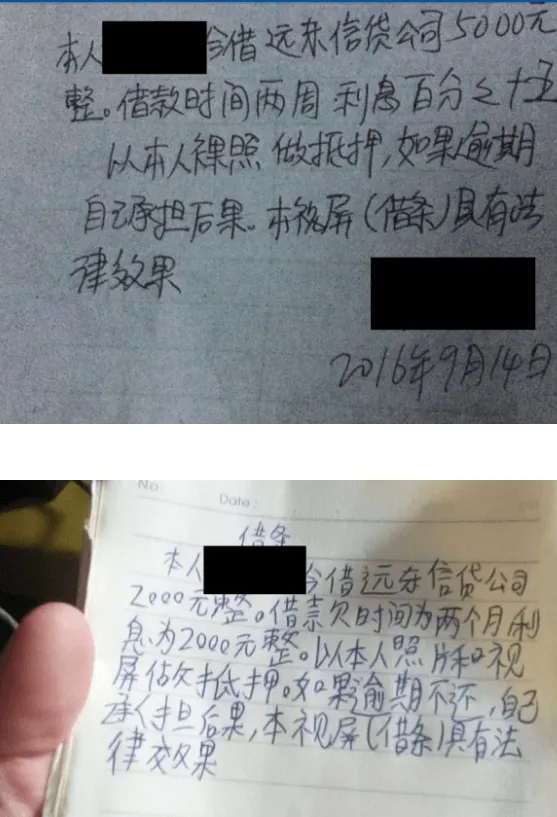 本人 今借远东信贷公司5000元
整。借款时间两周 利息百分之十五
以本人裸照 做抵押,如果逾期
自己承担后果。本视屏(借条)具有法
律效果
2016年9月14日
No:
Date:
借条
本人 今借远东信贷公司
2000元整。借款时间为两个月利
息为2000元整。以本人照片和视
屏做抵押。如果逾期不还,自己
承担后果,本视屏(借条)具有法
律效果